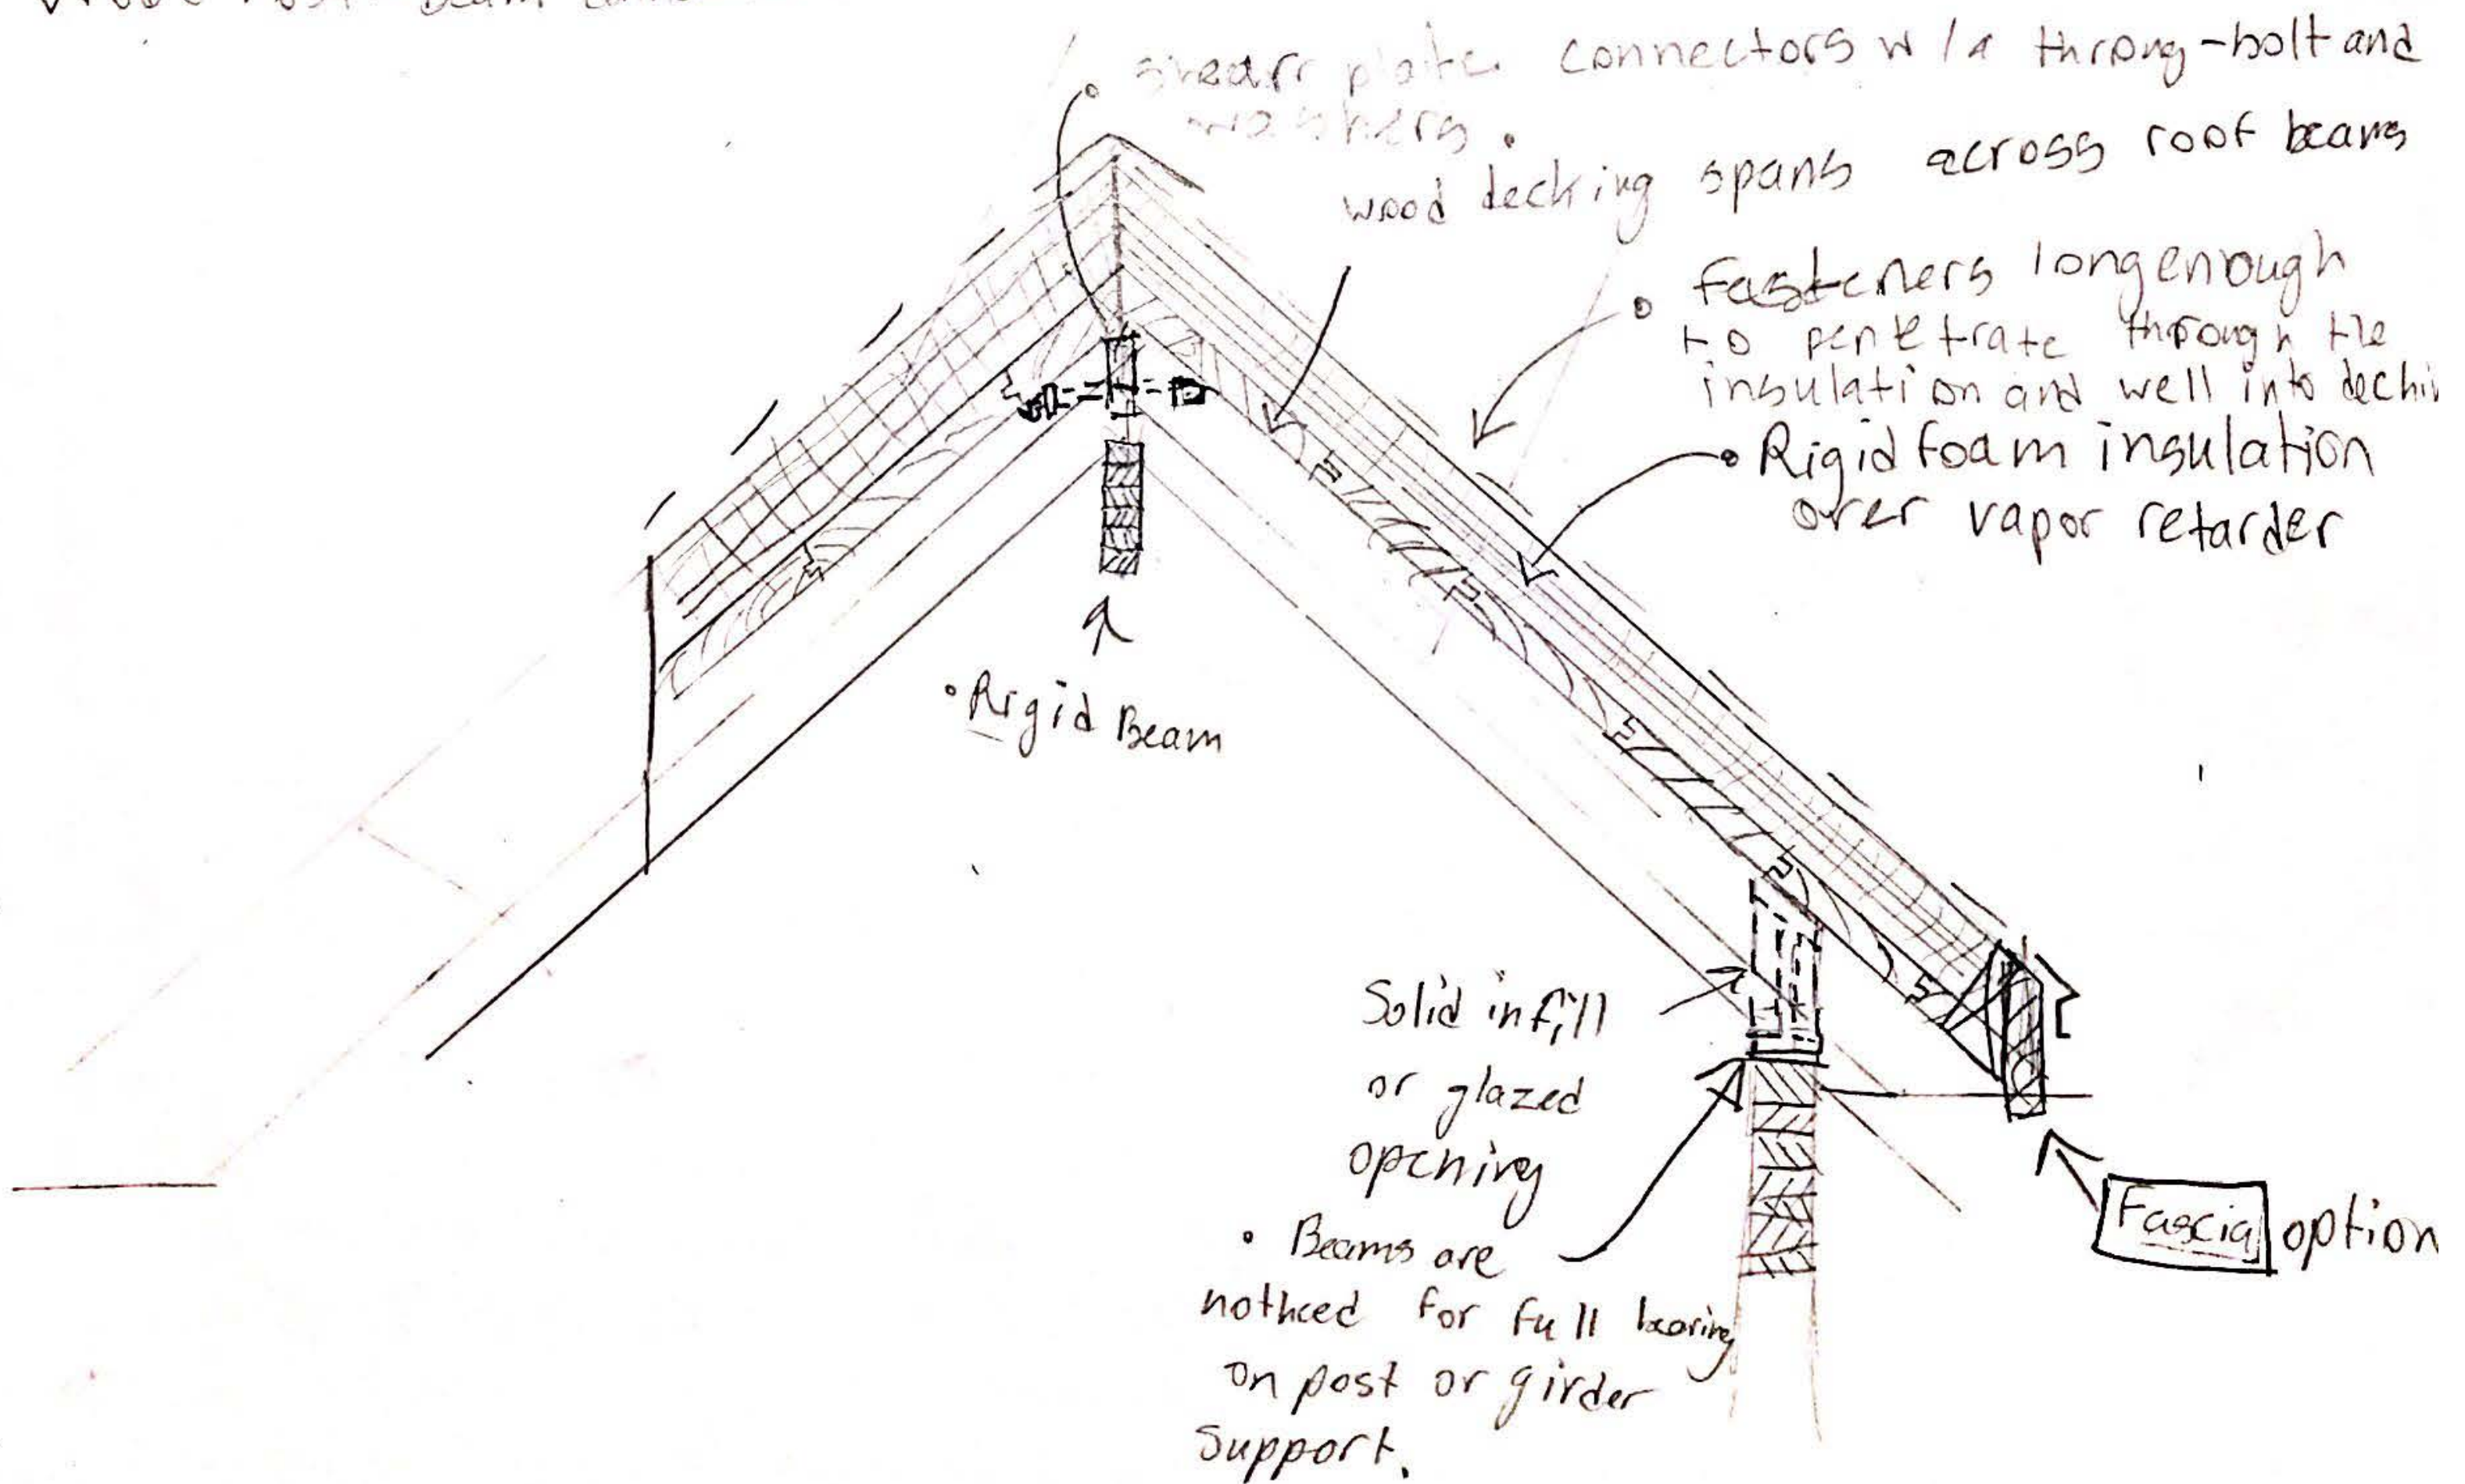 shearr plate connectors w/a throug-bolt and
washers.
wood decking spans across roof beams
• fasteners long enough
to penetrate through the
insulation and well into
• Rigid foam insulation
over vapor retarder
• Rigid Beam
Solid infill
or glazed
opening
• Beams are
nothced for full bearing
on post or girder
support.
Fascia option